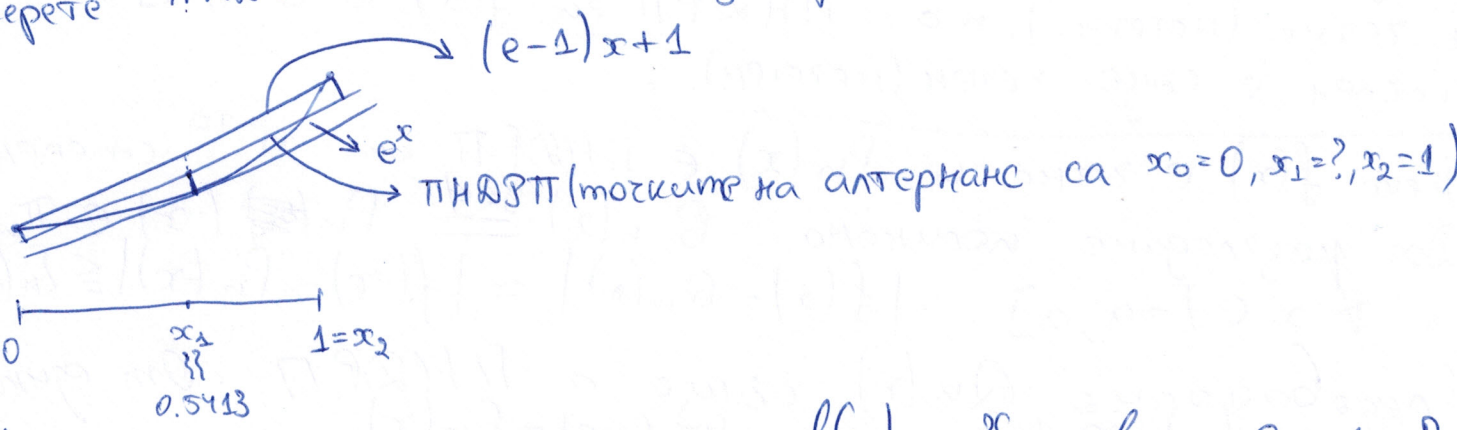 ерете
(e-1)x+1
e^x
ПНДРП (точките на алтернанс са x₀=0, x₁=?, x₂=1)
0 x₁ 1=x₂
≈
0.5413